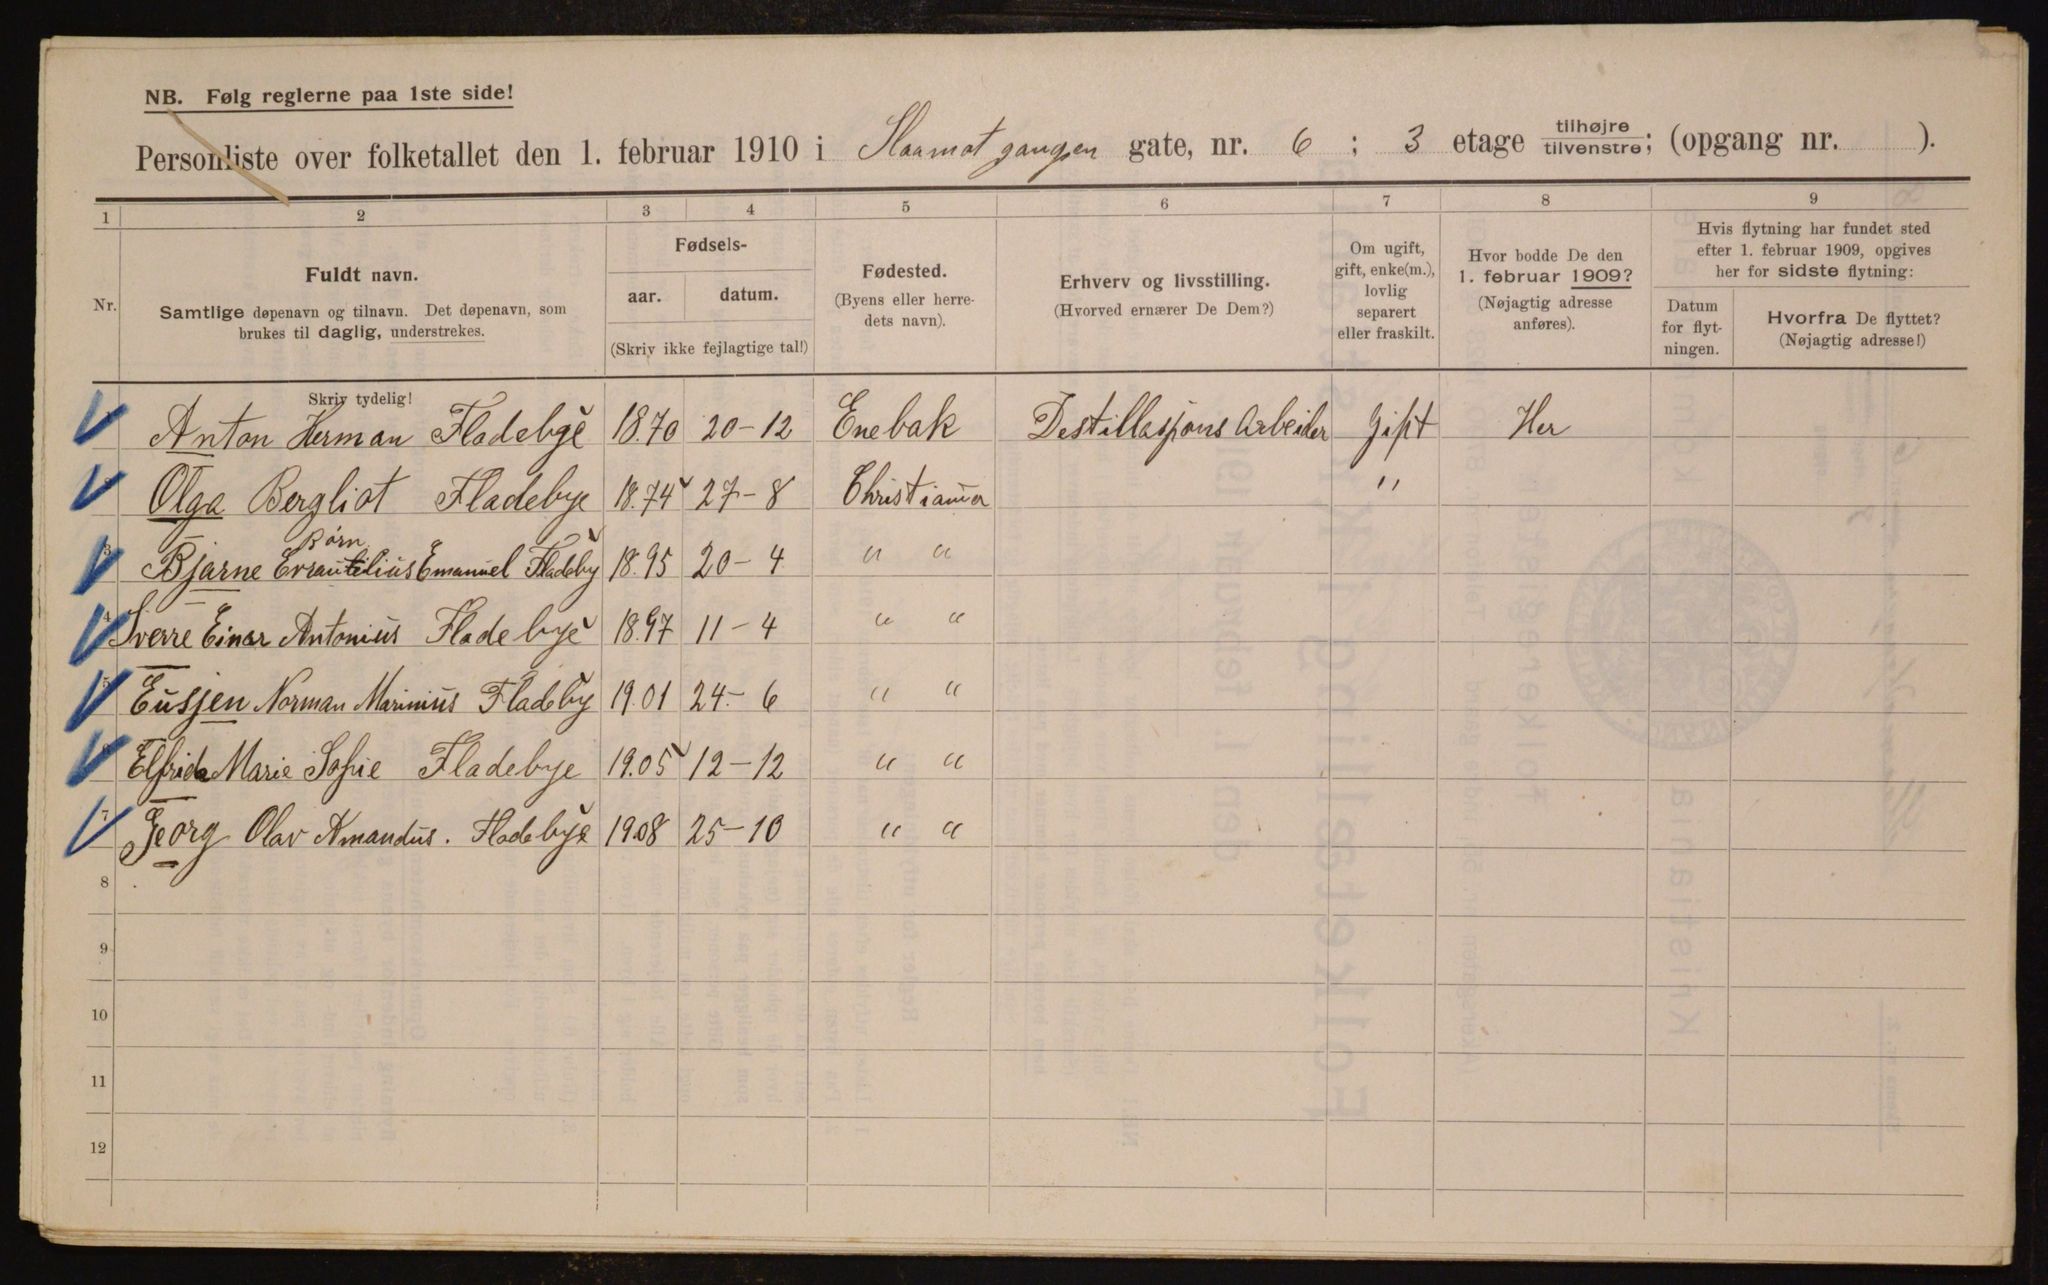 NB. Følg reglerne paa 1ste side!
Personliste over folketallet den 1. februar 1910 i Slaamotgangen gate, nr. 6 ; 3 etage tilhøjre tilvenstre; (opgang nr. ).
1 2 3 4 5 6 7 8 9
Nr.
Fuldt navn.
Samtlige døpenavn og tilnavn. Det døpenavn, som
brukes til daglig, understrekes.
Fødsels-
aar. datum.
(Skriv ikke fejlagtige tal!)
Fødested.
(Byens eller herre-
dets navn).
Erhverv og livsstilling.
(Hvorved ernærer De Dem?)
Om ugift,
gift, enke(m.),
lovlig
separert
eller fraskilt.
Hvor bodde De den
1. februar 1909?
(Nøjagtig adresse
anføres).
Hvis flytning har fundet sted
efter 1. februar 1909, opgives
her for sidste flytning:
Datum
for flyt-
ningen.
Hvorfra De flyttet?
(Nøjagtig adresse!)
Skriv tydelig!
Anton Herman Fladebye 1870 20-12 Enebak Destillasjons Arbeider Gift Her
Olga Bergliot Fladebye 1874 27-8 Christiania "
Børn
3 Bjarne Emanuel Fladeby 1895 20-4 " "
4 Sverre Einar Antonius Fladebye 1897 11-4 " "
5 Eusjen Norman Marinius Fladeby 1901 24-6 " "
6 Elfrida Marie Sofie Fladebye 1905 12-12 " "
7 Georg Olav Amandus. Fladebye 1908 25-10 " "
8
9
10
11
12